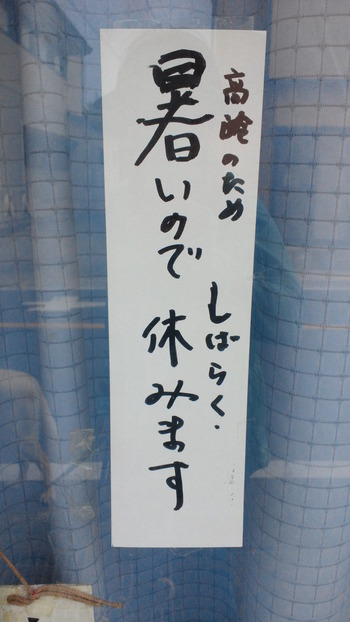 高齢のため
暑いので しばらく、
休みます